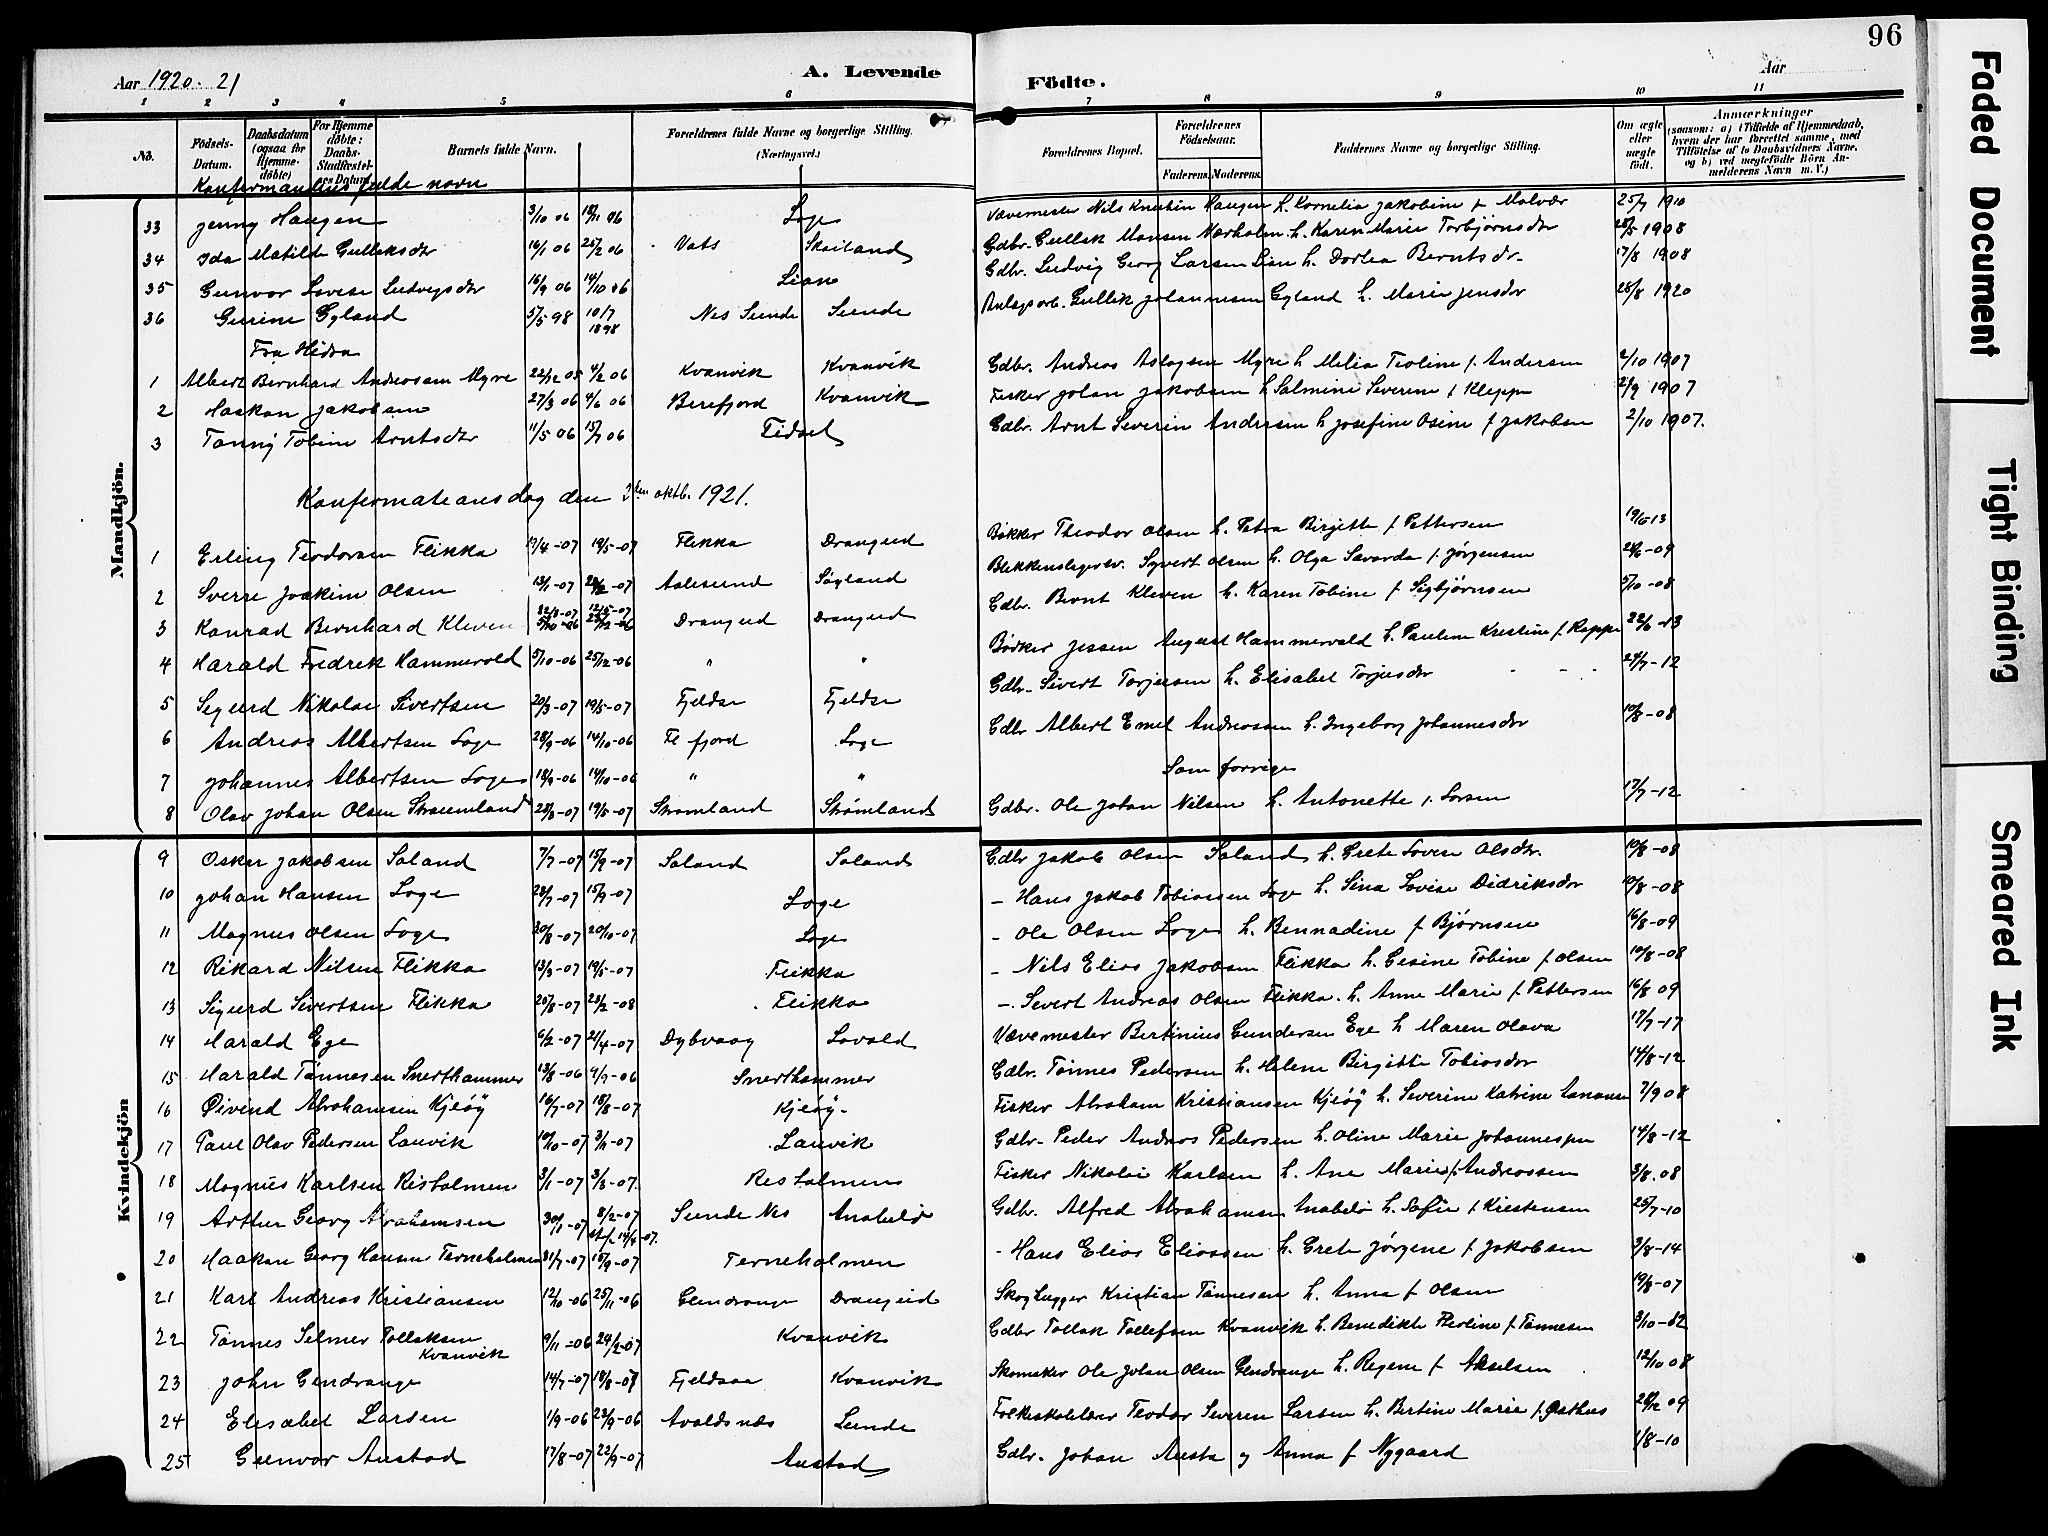 96
Aar 1920-21 A. Levende Födte. Aar
1 2 3 4 5 6 7 8 9 10 11
No. Födsels-Datum. Daabsdatum (ogsaa for Hjemme-döbte) For Hjemme döbte: Daabs-Stadfæstel-ses Datum. Barnets fulde Navn. Forældrenes fulde Navne og borgerlige Stilling. (Næringsvei.) Forældrenes Bopæl. Forældrenes Födselsaar. Faderens. Moderens. Faddernes Navne og borgerlige Stilling. Om ægte eller uægte födt. Anmærkninger (saasom: a) i Tilfælde af Hjemmedaab, hvem der har forrettet samme, med Tilföielse af to Daabsvidners Navne, og b) ved uægtefödte Börn An-melderens Navn m. V.)
Konfermandens fulde navn
33 Jenny Haugen 3/10 06 18/11 06 Loge Vævemester Nils Knutsen Haugen h. Kornelia Jakobine f Molvær 25/7 1910
34 Ida Matilde Gulleksdtr 16/1 06 25/2 06 Vats Skailand Gdbr. Gullek Monsen Nærholm h. Karen Marie Torbjørnsdtr 28/5 1908
35 Gunvor Lovise Ludvigsdtr 16/9 06 14/10 06 Lian Gdbr. Ludvig Georg Larsen Lian h. Dorlea Berntsdr. 17/8 1908
36 Gurine Gyland 5/5 98 10/7 1898 Nes Sunde Sunde Anlægsarb. Gullik Johannesen Gyland h. Marie Jensdtr 28/8 1920
Fra Hidra
1 Albert Bernhard Andreassen Myre 22/12 05 4/2 06 Kvanvik Kvanvik Gdbr. Andreas Aslagsen Myre h. Milia Teoline f. Andersen 2/10 1907
2 Haakon Jakobsen 27/3 06 4/6 06 Berefjord Kvanvik Fisker Johan Jakobsen h Salmine Severine f Kleppe 21/9 1907
3 Tanny Tobine Arntsdtr 11/5 06 15/7 06 Fidsel Gdbr. Arnt Severin Andersen h Josefine Osine f Jakobsen 2/10 1907.
Mandkjön.
Konfermateonsdag den 2den oktb. 1921.
1 Erling Teodorsen Flikka 17/4-07 19/5-07 Flikka Drangeid Bøkker Theodor Olsen h. Petra Birgitte f Pettersen
2 Sverre Joakim Olsen 13/1-07 Aalesund Søyland Blekkenslagersv. Syvert Olsen h. Olga Savarda f. Jørgensen 24/6-09
3 Konrad Bernhard Kleven Drangeid Drangeid Gdbr. Bernt Kleven h. Karen Tobine f Sigbjørnsen 5/10-08
4 Harald Fredrik Hammervold 5/10-06 25/12-06 " " Bødker Jessen August Hammervold h. Pauline Kristine f. Rappe 22/6-13
5 Sigurd Nikolai Sivertsen 20/3-07 19/5-07 Fjeldse Fjeldse Gdbr. Sivert Torjusen h. Elisabet Torjusdtr 24/7-12
6 Andreas Albertsen Loge 28/9-06 14/10-06 Fl fjord Loge Gdbr Albert Emel Andreassen h. Ingeborg Johannesdtr 10/8-08
7 Johannes Albertsen Loge 18/9-06 14/10-06 " " Som forrige
8 Olav Johan Olsen Straumland 28/3-07 19/5-07 Strømland Strømland Gdbr. Ole Johan Nilsen h. Antonette f. Larsen 17/7-12
Kvindekjön
9 Oskar Jakobsen Saland 7/7-07 15/9-07 Saland Saland Gdbr Jakob Olsen Saland h. Grete Lovise Olsdtr. 10/8-08
10 Johan Hansen Loge 28/7-07 15/9-07 Loge - Hans Jakob Tobiassen Loge h. Sina Lovise Didriksdtr 10/8-08
11 Magnus Olsen Loge 20/8-07 20/10-07 Loge - Ole Olsen Loge h. Bennadine f Bjørnsen 16/8-09
12 Rikard Nilsen Flikka 13/3-07 19/5-07 Flikka - Nils Elias Jakobsen Flikka h. Gesine Tobine f Olsen 10/8-08
13 Sigurd Sivertsen Flikka 25/8-07 23/2-08 Flikka - Severt Andreas Olsen Flikka. h. Anne Marie f. Pettersen 16/8 09
14 Harald Ege 6/2-07 21/4-07 Dybvaag Lovold Vævemester Bertinius Gundersen Ege h Maren Olava 17/7-17
15 Harald Tønnesen Snerthammer 13/8-06 9/9-06 Snerthammer Gdbr. Tønnes Pedersen h. Helene Birgitte Tobiasdtr 14/8-12
16 Øivind Abrahamsen Kjeøy 16/7-07 18/8-07 Kjeøy. Fisker Abraham Kristiansen Kjeøy h. Severine Katrine 7/9 08
17 Paul Olav Pedersen Lauvik 10/10-07 3/11-07 Lauvik Gdbr. Peder Andreas Pedersen h. Oline Marie Johannesen 14/8-12
18 Magnus Karlsen Risholmen 3/1-07 3/3-07. Resholmen Fisker Nikolai Karlsen h. Ane Marie f. Andreassen 3/8.08
19 Arthur Georg Abrahamsen 30/1-07 8/2-07 st. f. 14/4-07. Sunde Nes Anabelø Gdbr. Alfred Abrahamsen Anabelø h. Sofie f Kristensen 25/7-10
20 Haakon Georg Hansen Terneholmen 31/7-07 15/9-07 Terneholmen - Hans Elias Eliassen h. Grete Jørgine f Jakobsen 3/8-14
21 Karl Andreas Kristiansen 12/10-06 25/11-06 Gendrange Drangeid Skoghugger Kristian Tønnesen h. Anna f Olsen 19/8-07
22 Tønnes Selmer Tollaksen Kvanvik 9/11-06 24/2-07 Kvanvik Gdbr Tollak Tollefsen Kvanvik h. Benedikte Theoline f. Tønnesen 3/10-82
23 John Gendrange 14/7-07 18/8-07 Fjeldsaa Kvanvik Skomaker Ole Johan Olsen Gendrange h. Regene f. Akselsen 12/10 08
24 Elisabet Larsen 1/9-06 23/9-06 Avaldsnæs Sunde Folkeskolelærer Teodor Severen Larsen h. Bertine Marie f. Østhus
25 Gunvor Austad 17/8-07 22/9-07 Austad Gdbr. Johan Austa og Anna f Nygaard 1/8-10
Faded Document
Tight Binding
Smeared Ink